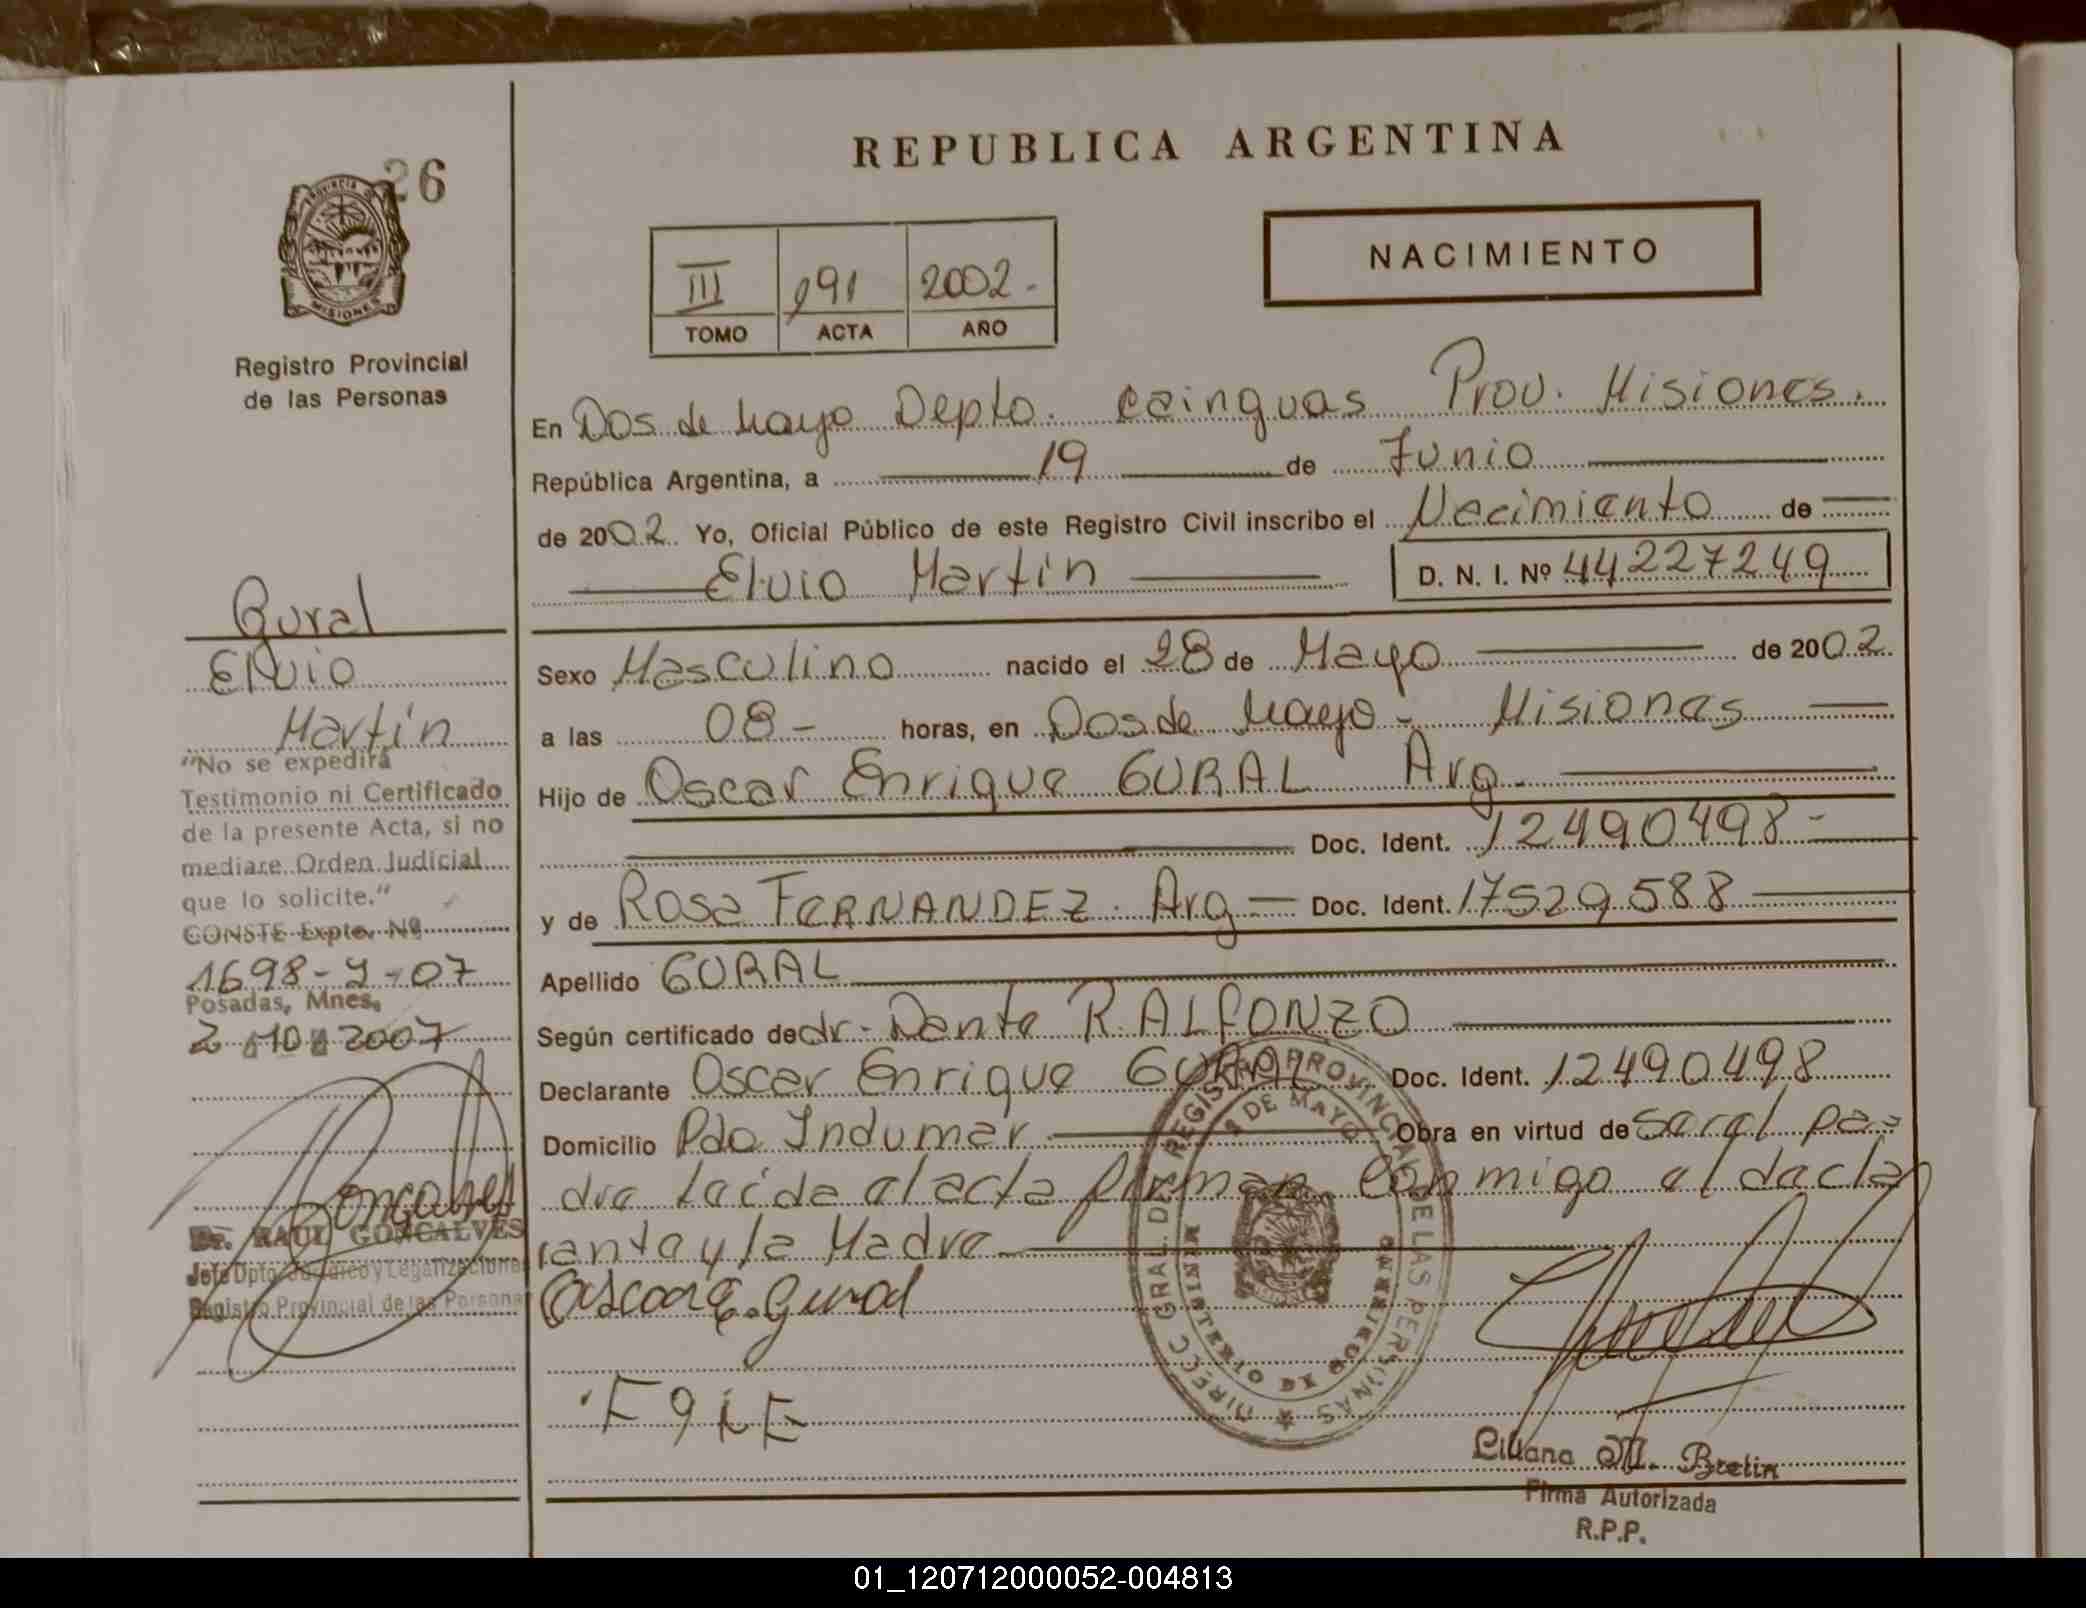 REPUBLICA ARGENTINA
26
PROVINCIA D
MISIONES
Registro Provincial
de las Personas
NACIMIENTO
III 191 2002.
TOMO ACTA AÑO
En Dos de Mayo Depto. Cainguas Prov. Misiones.
República Argentina, a 19 de Junio
de 2002. Yo, Oficial Público de este Registro Civil inscribo el Nacimiento de
Elvio Martin D. N. I. Nº 44227249
Gural
Elvio
Martin
"No se expedirá
Testimonio ni Certificado
de la presente Acta, si no
mediare Orden Judicial
que lo solicite."
CONSTE Expte. Nº
1698-J-07
Posadas, Mnes.
2 10 2007
Goncalves
Dr. RAUL GONCALVES
Jefe Dpto. Jurídico y Legalizaciones
Registro Provincial de las Personas
Sexo Masculino nacido el 28 de Mayo de 2002.
a las 08- horas, en Dos de Mayo - Misiones
Hijo de Oscar Enrique GURAL Arg.
Doc. Ident. 12490498-
y de Rosa FERNANDEZ. Arg Doc. Ident. 17529588
Apellido GURAL
Según certificado de dr. Dante R. ALFONZO
Declarante Oscar Enrique GURAL Doc. Ident. 12490498
Domicilio Pdo Indumar Obra en virtud de ser el pa-
dre Leída el acta firman conmigo el decla
rante y la Madre
Oscar E. Gural
DIRECC GRAL. DE REGISTRO PROVINCIAL DE LAS PERSONAS
2 DE MAYO
MINISTERIO DE GOBIERNO
Liliana M. Bretin
Firma Autorizada
R.P.P.
01_120712000052-004813